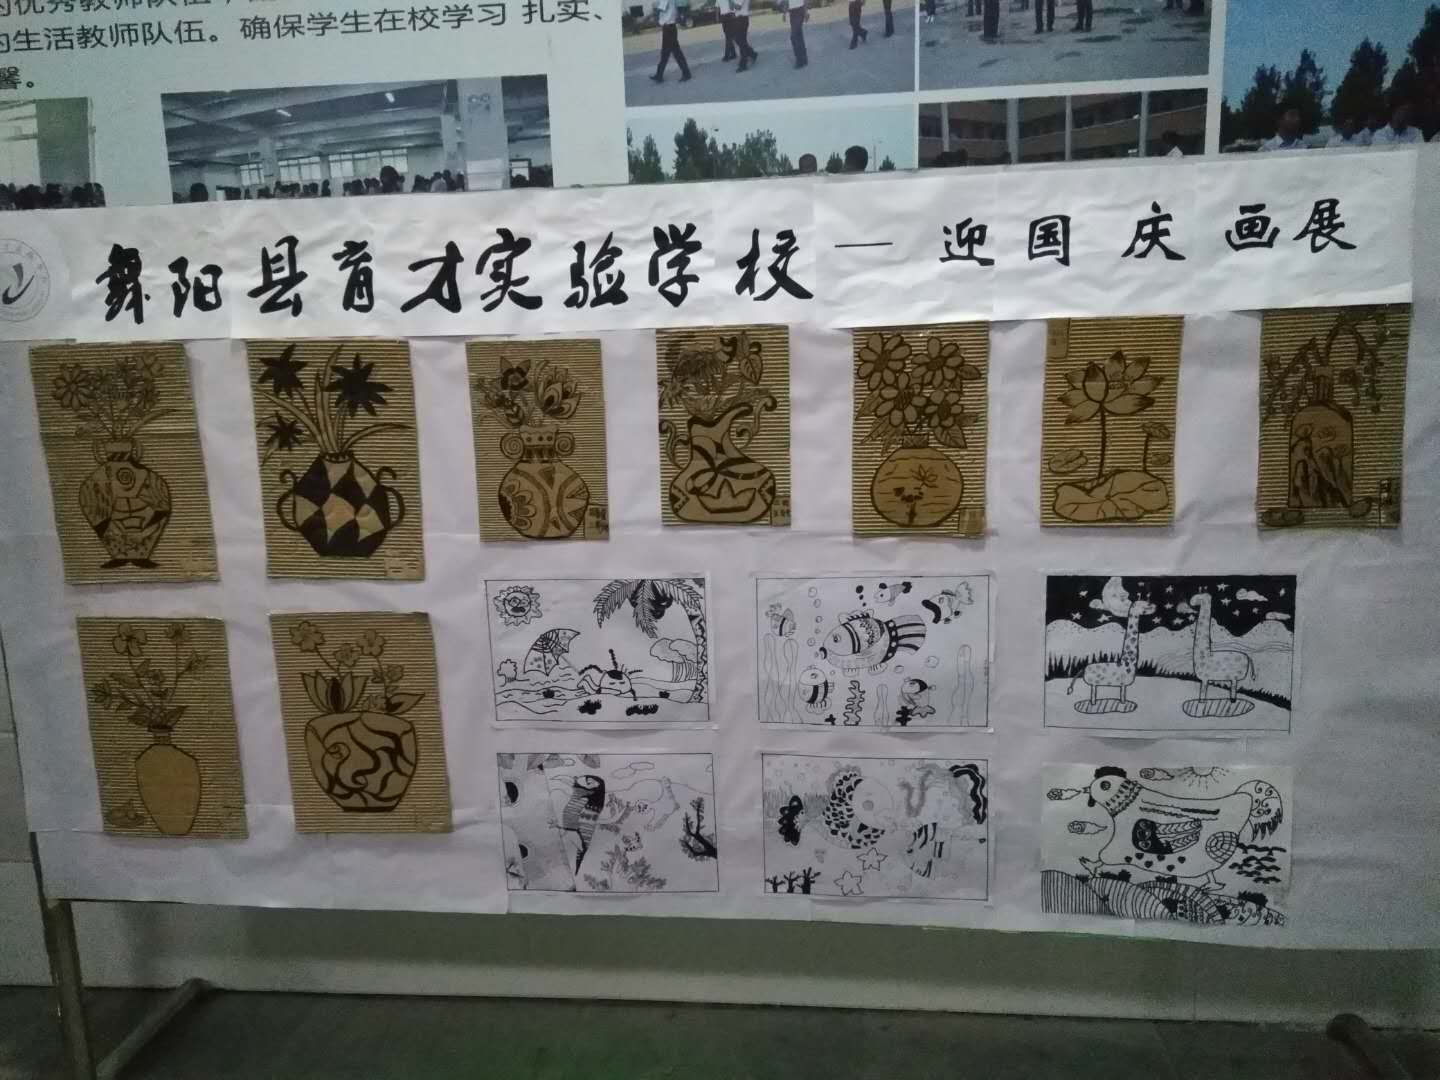 的优秀教师队伍，
的生活教师队伍。确保学生在校学习 扎实、
馨。
舞阳县育才实验学校—迎国庆画展